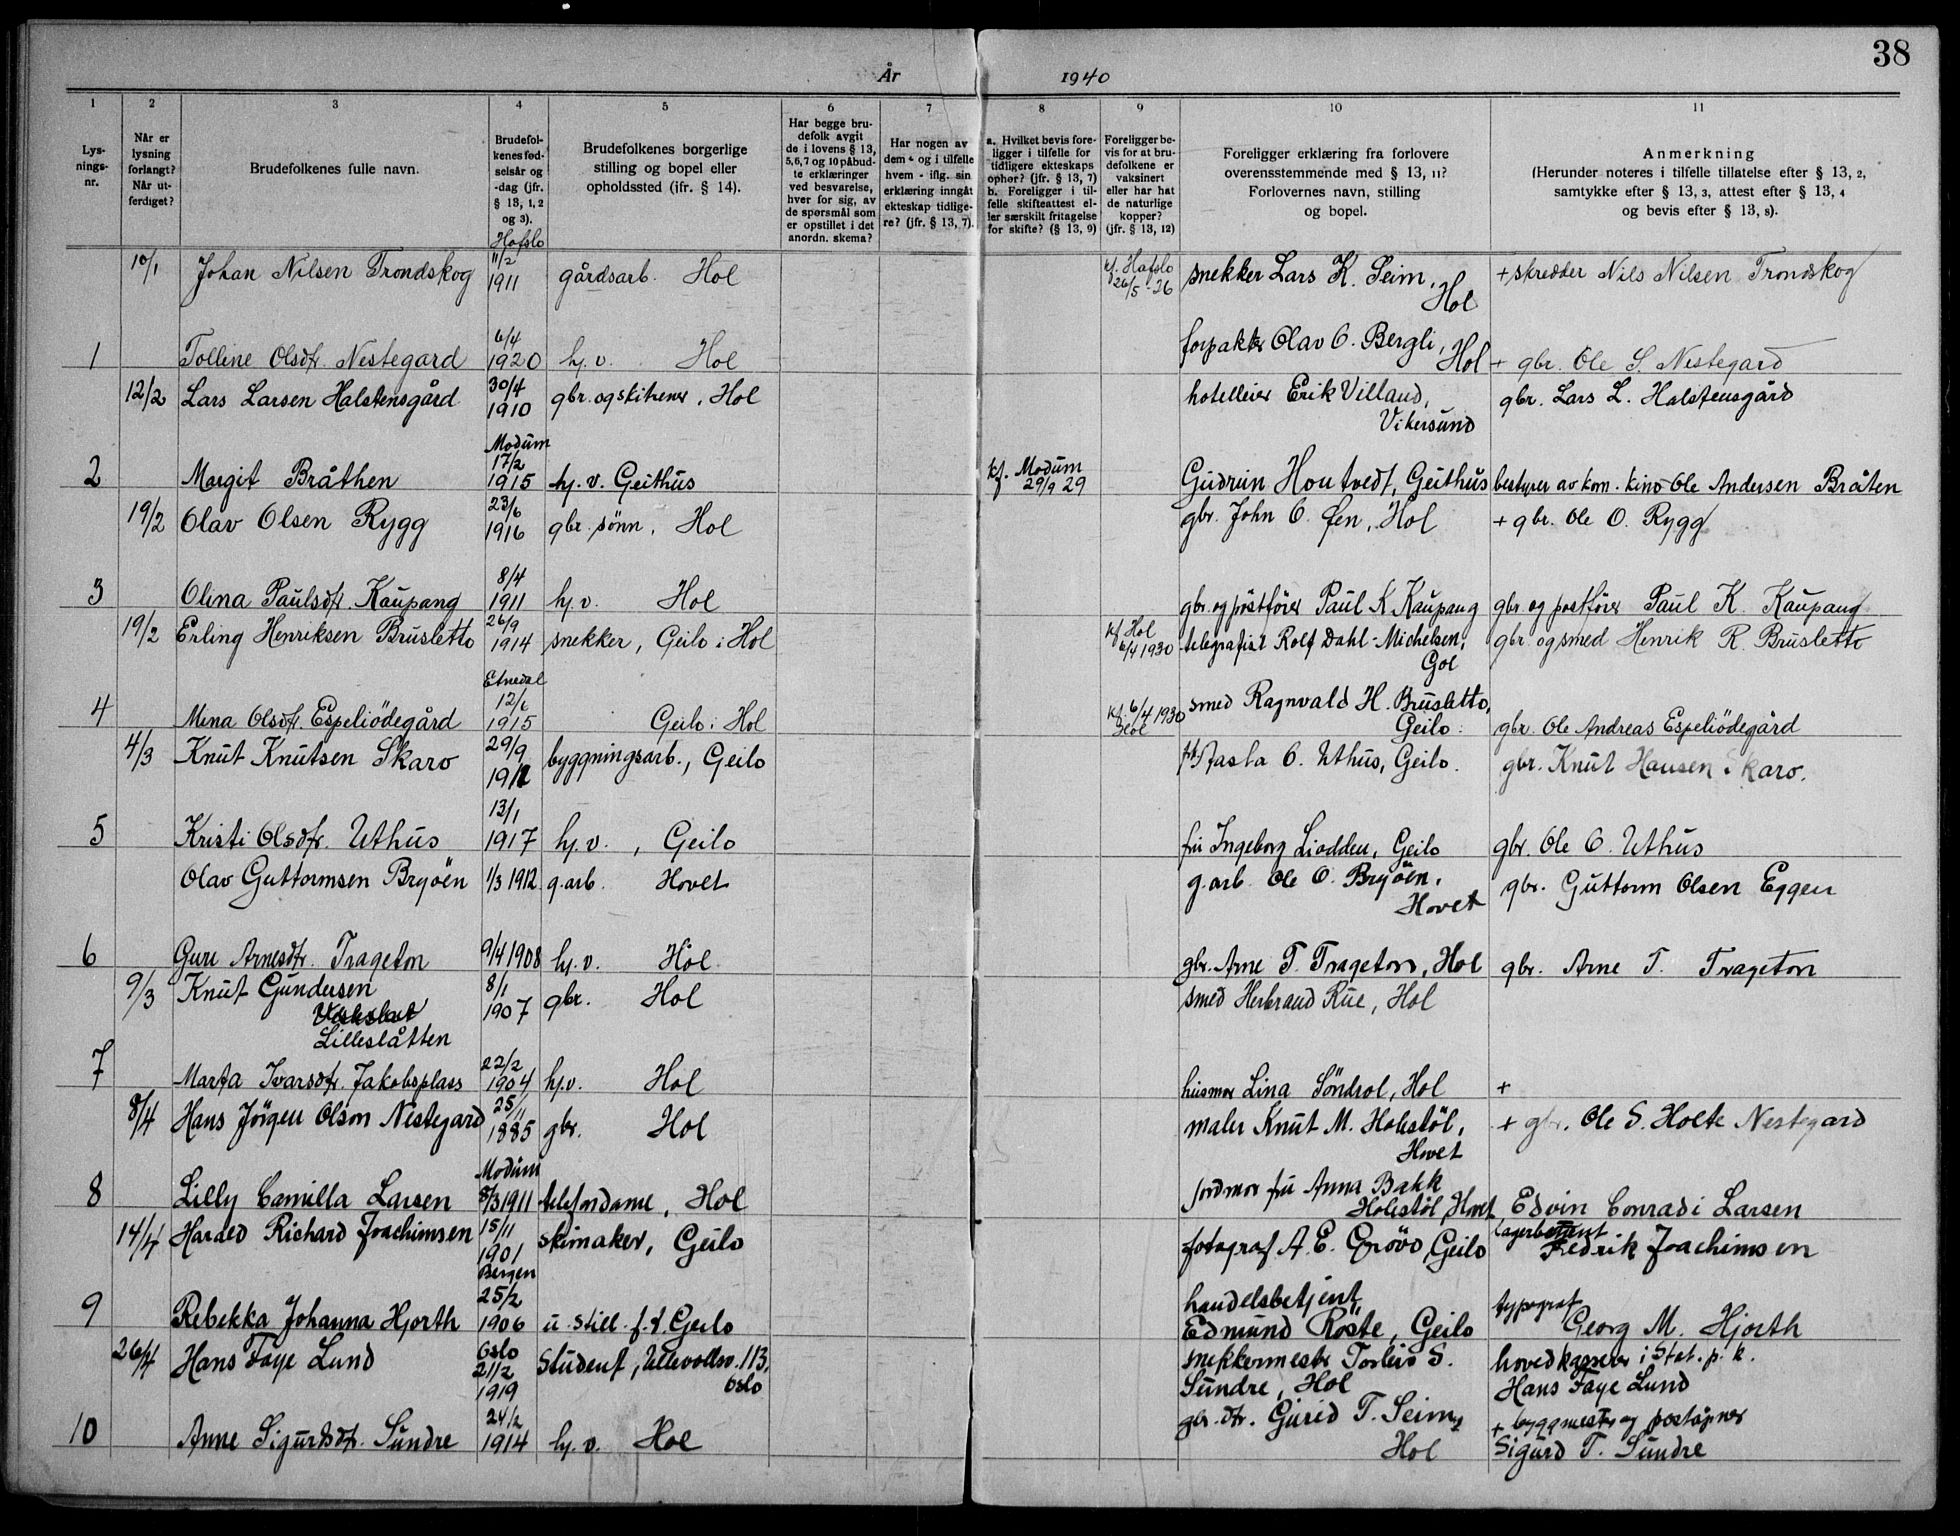 38
År 1940
1 2 3 4 5 6 7 8 9 10 11
Lysningsnr.
Når er lysning forlangt? Når utferdiget?
Brudefolkenes fulle navn.
Brudefolkenes fødselsår og -dag (jfr. § 13, 1, 2 og 3).
Brudefolkenes borgerlige stilling og bopel eller opholdssted (jfr. § 14).
Har begge brudefolk avgit de i lovens § 13, 5, 6, 7 og 10 påbudte erklæringer ved besvarelse, hver for sig, av de spørsmål som er opstillet i det anordn. skema?
Har nogen av dem - og i tilfelle hvem - iflg. sin erklæring inngått ekteskap tidligere? (jfr. § 13, 7).
a. Hvilket bevis foreligger i tilfelle for tidligere ekteskaps ophør? (jfr. § 13, 7)
b. Foreligger i tilfelle skifteattest eller særskilt fritagelse for skifte? (§ 13, 9)
Foreligger bevis for at brudefolkene er vaksinert eller har hat de naturlige kopper? (jfr. § 13, 12)
Foreligger erklæring fra forlovere overensstemmende med § 13, 11? Forlovernes navn, stilling og bopel.
Anmerkning
(Herunder noteres i tilfelle tillatelse efter § 13, 2, samtykke efter § 13, 3, attest efter § 13, 4 og bevis efter § 13, 8).
10/1 Johan Nilsen Trondskog Hafslo 11/2 1911 gårdsarb. Hol kf. Hafslo 26/5-26 snekker Lars K. Seim, Hol + skredder Nils Nilsen Trondskog
1 Tolline Olsdtr. Nestegard 6/4 1920 hj.v. Hol forpakter Olav O. Bergli, Hol + gbr. Ole S. Nestegard
12/2 Lars Larsen Halstensgård 30/4 1910 gbr. og skitrener, Hol hotelleier Erik Villand, Vikersund gbr. Lars L. Halstensgård
2 Margit Bråthen Modum 17/2 1915 hj.v. Geithus kf. Modum 29/9 29 Gudrun Houtvedt, Geithus bestyrer av kom. kino Ole Andersen Bråten
19/2 Olav Olsen Rygg 23/6 1916 gbr. sønn, Hol gbr. John O. Øen, Hol + gbr. Ole O. Rygg
3 Olina Paulsdtr. Kaupang 8/4 1911 hj.v. Hol gbr. og postfører Paul K Kaupang gbr. og postfører Paul K. Kaupang
19/2 Erling Henriksen Brusletto 26/9 1914 snekker, Geilo i Hol kf Hol 6/4 1930 telegrafist Rolf Dahl-Michelsen, Gol gbr og smed Henrik R. Brusletto
4 Mina Olsdtr. Espeliödegård Etnedal 12/6 1915 Geilo i Hol kf. 6/4 1930 Hol smed Ragnvald H. Brusletto, Geilo gbr. Ole Andreas Espeliödegård
4/3 Knut Knutsen Skaro 29/9 1912 byggningsarb., Geilo Aasta O. Uthus, Geilo. gbr. Knut Hansen Skaro.
5 Kristi Olsdtr. Uthus 13/1 1917 hj.v., Geilo fru Ingeborg Liodden, Geilo gbr. Ole O. Uthus
Olav Guttormsen Bryöen 1/3 1912 g.arb. Hovet g.arb. Ole O. Bryöen, Hovet gbr. Guttorm Olsen Eggen
6 Guri Arnesdtr. Trageton 9/4 1908 hj.v. Hol gbr. Arne T. Trageton, Hol gbr. Arne T. Trageton
9/3 Knut Gundersen Lilleslåtten 8/1 1907 gbr. Hol smed Herbrand Rue, Hol
7 Marta Ivarsdtr. Jakobsplass 22/2 1904 hj.v. Hol husmor Lina Söndrol, Hol +
8/4 Hans Jörgen Olson Nestegard 25/11 1885 gbr. Hol maler Knut M. Holestöl, Hovet + gbr. Ole S. Holte Nestegard
8 Lilly Camilla Larsen Modum 8/3 1911 telefondame, Hol jordmor fru Anna Bakk Holestöl, Hovet Edvin Conradi Larsen
14/4 Harald Richard Joachimsen 15/11 1901 skimaker, Geilo fotograf A. E. Grövo, Geilo lagerbetjent Fredrik Joachimsen
9 Rebekka Johanna Hjorth Bergen 25/2 1906 u. still. f.t. Geilo handelsbetjent Edmund Röste, Geilo typograf Georg M. Hjorth
26/4 Hans Faye Lund Oslo 21/2 1919 student, Ullevollsv. 113, Oslo snekkermester Torleiv S. Sundre, Hol hovedkasserer i Stat. p. k. Hans Faye Lund
10 Anne Sigurdsdtr. Sundre 24/2 1914 hj.v. Hol gbr. dtr. Gurid T. Seim, Hol + byggmester og poståpner Sigurd T. Sundre